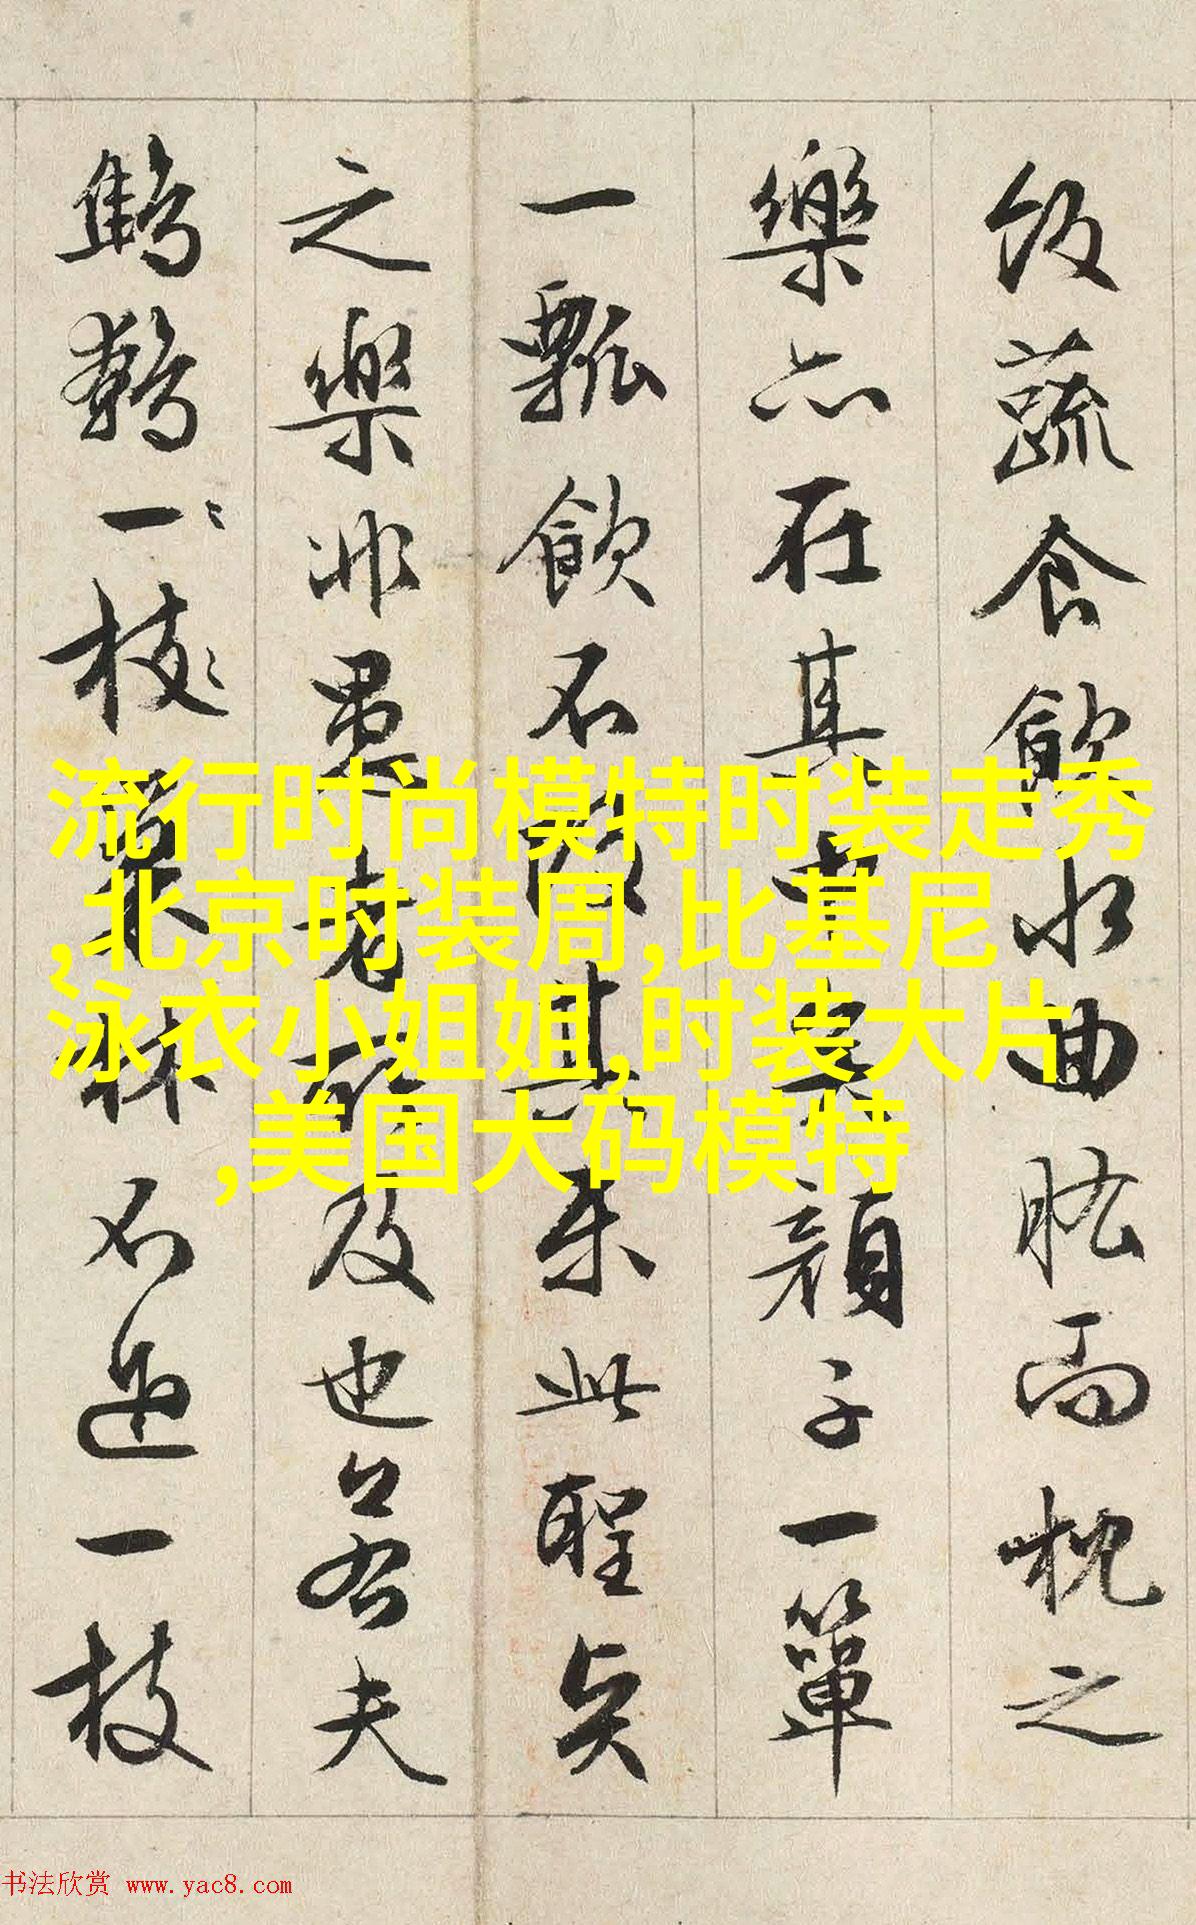 飯蔬食飲水曲肱而枕之
樂亦在其中矣顏子一簞
一瓢飲不改其樂此聖賢
之樂非愚者所及也若夫
鷦鷯一一枝枝巢林不過一枝
流行时尚模特时装走秀
,北京时装周,比基尼
泳衣小姐姐,时装大片
,美国大码模特
书法欣赏 www.yac8.com